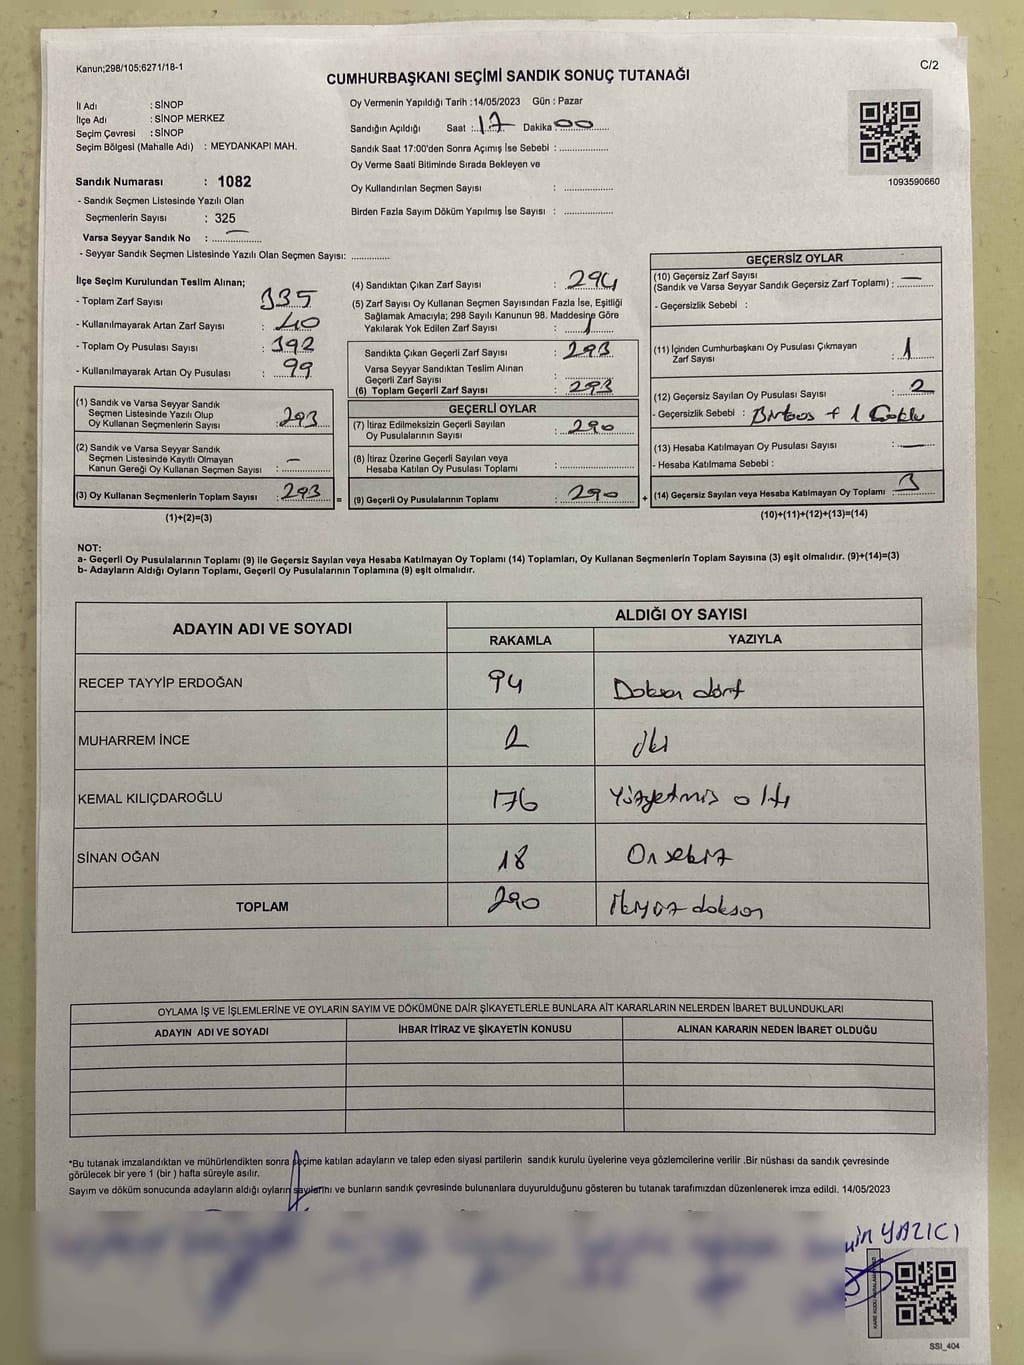 Kanun;298/105;6271/18-1
C/2
CUMHURBAŞKANI SEÇİMİ SANDIK SONUÇ TUTANAĞI
İl Adı : SİNOP
İlçe Adı : SİNOP MERKEZ
Seçim Çevresi : SİNOP
Seçim Bölgesi (Mahalle Adı) : MEYDANKAPI MAH.
Sandık Numarası : 1082
- Sandık Seçmen Listesinde Yazılı Olan
Seçmenlerin Sayısı : 325
Varsa Seyyar Sandık No : ................
- Seyyar Sandık Seçmen Listesinde Yazılı Olan Seçmen Sayısı: ............
Oy Vermenin Yapıldığı Tarih :14/05/2023 Gün : Pazar
Sandığın Açıldığı Saat : 17 Dakika 00
Sandık Saat 17:00'den Sonra Açımış İse Sebebi : ................
Oy Verme Saati Bitiminde Sırada Bekleyen ve
Oy Kullandırılan Seçmen Sayısı : ................
Birden Fazla Sayım Döküm Yapılmış İse Sayısı : ................
1093590660
İlçe Seçim Kurulundan Teslim Alınan;
- Toplam Zarf Sayısı 335
- Kullanılmayarak Artan Zarf Sayısı : 40
- Toplam Oy Pusulası Sayısı : 392
- Kullanılmayarak Artan Oy Pusulası : 99
(1) Sandık ve Varsa Seyyar Sandık
Seçmen Listesinde Yazılı Olup
Oy Kullanan Seçmenlerin Sayısı : 293
(2) Sandık ve Varsa Seyyar Sandık
Seçmen Listesinde Kayıtlı Olmayan
Kanun Gereği Oy Kullanan Seçmen Sayısı : –
(3) Oy Kullanan Seçmenlerin Toplam Sayısı : 293 =
(1)+(2)=(3)
(4) Sandıktan Çıkan Zarf Sayısı : 294
(5) Zarf Sayısı Oy Kullanan Seçmen Sayısından Fazla İse, Eşitliği
Sağlamak Amacıyla; 298 Sayılı Kanunun 98. Maddesine Göre
Yakılarak Yok Edilen Zarf Sayısı : 1
Sandıkta Çıkan Geçerli Zarf Sayısı : 293
Varsa Seyyar Sandıktan Teslim Alınan
Geçerli Zarf Sayısı : ................
(6) Toplam Geçerli Zarf Sayısı : 293
GEÇERLİ OYLAR
(7) İtiraz Edilmeksizin Geçerli Sayılan
Oy Pusulalarının Sayısı : 290
(8) İtiraz Üzerine Geçerli Sayılan veya
Hesaba Katılan Oy Pusulası Toplamı : ................
(9) Geçerli Oy Pusulalarının Toplamı : 290 +
GEÇERSİZ OYLAR
(10) Geçersiz Zarf Sayısı
(Sandık ve Varsa Seyyar Sandık Geçersiz Zarf Toplamı) : –
- Geçersizlik Sebebi :
(11) İçinden Cumhurbaşkanı Oy Pusulası Çıkmayan
Zarf Sayısı : 1
(12) Geçersiz Sayılan Oy Pusulası Sayısı : 2
- Geçersizlik Sebebi : + 1
(13) Hesaba Katılmayan Oy Pusulası Sayısı : –
- Hesaba Katılmama Sebebi :
(14) Geçersiz Sayılan veya Hesaba Katılmayan Oy Toplamı : 3
(10)+(11)+(12)+(13)=(14)
NOT:
a- Geçerli Oy Pusulalarının Toplamı (9) ile Geçersiz Sayılan veya Hesaba Katılmayan Oy Toplamı (14) Toplamları, Oy Kullanan Seçmenlerin Toplam Sayısına (3) eşit olmalıdır. (9)+(14)=(3)
b- Adayların Aldığı Oyların Toplamı, Geçerli Oy Pusulalarının Toplamına (9) eşit olmalıdır.
ADAYIN ADI VE SOYADI
ALDIĞI OY SAYISI
RAKAMLA YAZIYLA
RECEP TAYYİP ERDOĞAN 94 Doksan dört
MUHARREM İNCE 2 iki
KEMAL KILIÇDAROĞLU 176 Yüzyetmiş altı
SİNAN OĞAN 18 Onsekiz
TOPLAM 290 İkiyüz doksan
OYLAMA İŞ VE İŞLEMLERİNE VE OYLARIN SAYIM VE DÖKÜMÜNE DAİR ŞİKAYETLERLE BUNLARA AİT KARARLARIN NELERDEN İBARET BULUNDUKLARI
ADAYIN ADI VE SOYADI İHBAR İTİRAZ VE ŞİKAYETİN KONUSU ALINAN KARARIN NEDEN İBARET OLDUĞU
*Bu tutanak imzalandıktan ve mühürlendikten sonra seçime katılan adayların ve talep eden siyasi partilerin sandık kurulu üyelerine veya gözlemcilerine verilir .Bir nüshası da sandık çevresinde
görülecek bir yere 1 (bir ) hafta süreyle asılır.
Sayım ve döküm sonucunda adayların aldığı oyların sayılarını ve bunların sandık çevresinde bulunanlara duyurulduğunu gösteren bu tutanak tarafımızdan düzenlenerek imza edildi. 14/05/2023
YAZICI
SSI_404